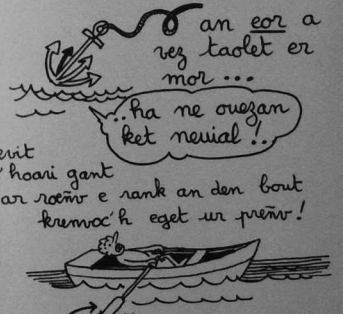 an eor a
vez taolet er
mor ...
..ha ne ouezan
ket neuial !..
evit
c'hoari gant
ar roeñv e rank an den bout
kremvoc'h eget ur preñv !